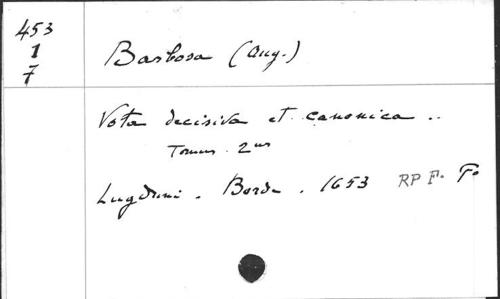 453
1
7
Barbosa (Aug.)
Vota decisiva et canonica ..
Tomus 2us
Lugduni . Borde . 1653 RP F. F.